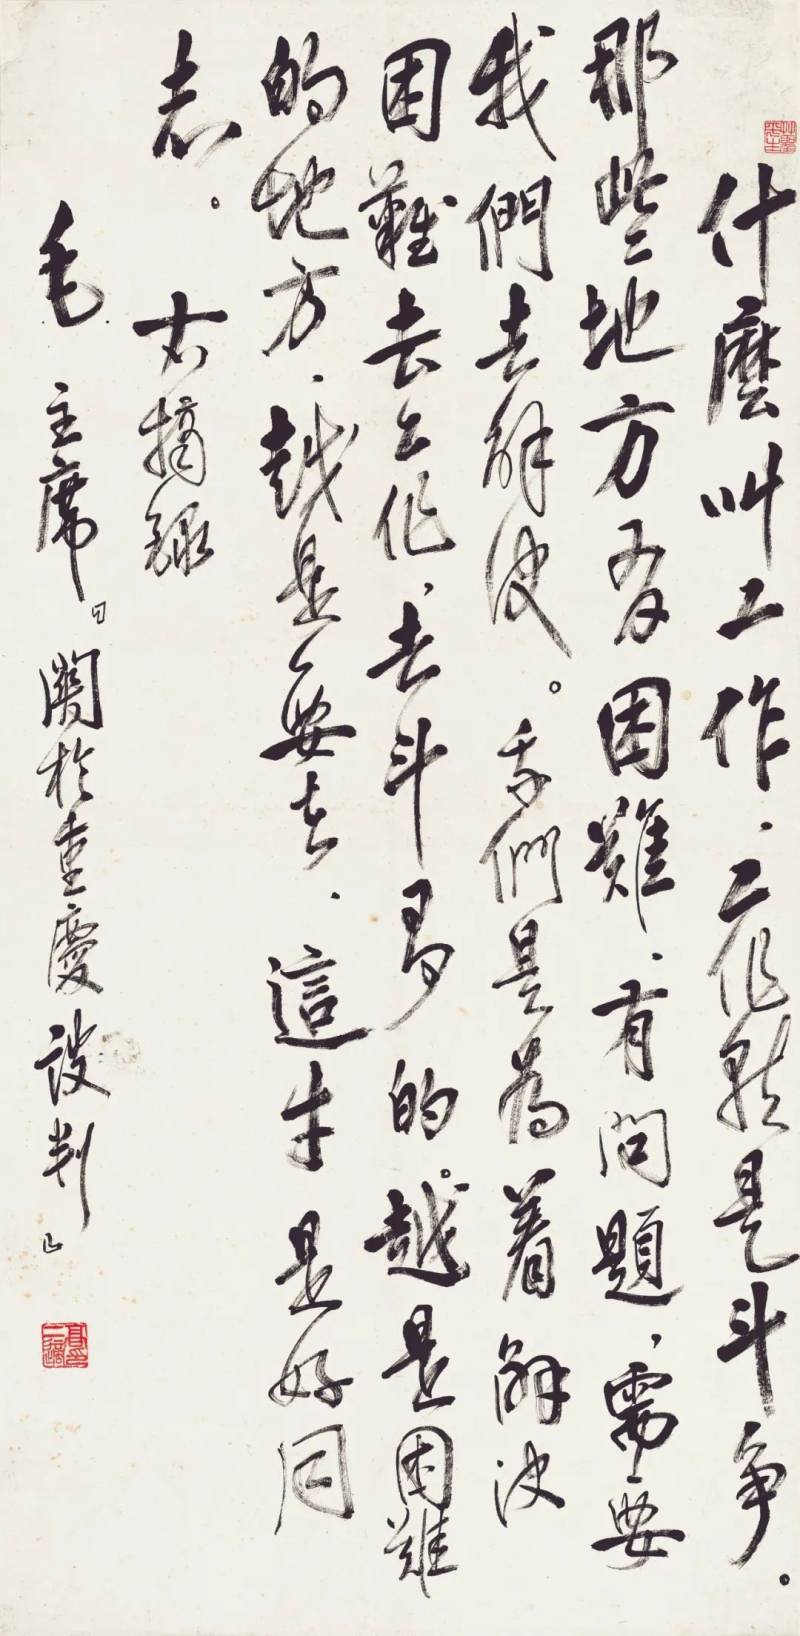 什麼叫工作、工作就是斗争。
那些地方有困難、有問題、需要
我們去解決。我們是為着解決
困難去工作、去斗争的。越是困難
的地方、越是要去、這才是好同
志。 右摘錄
毛主席「關於重慶談判」